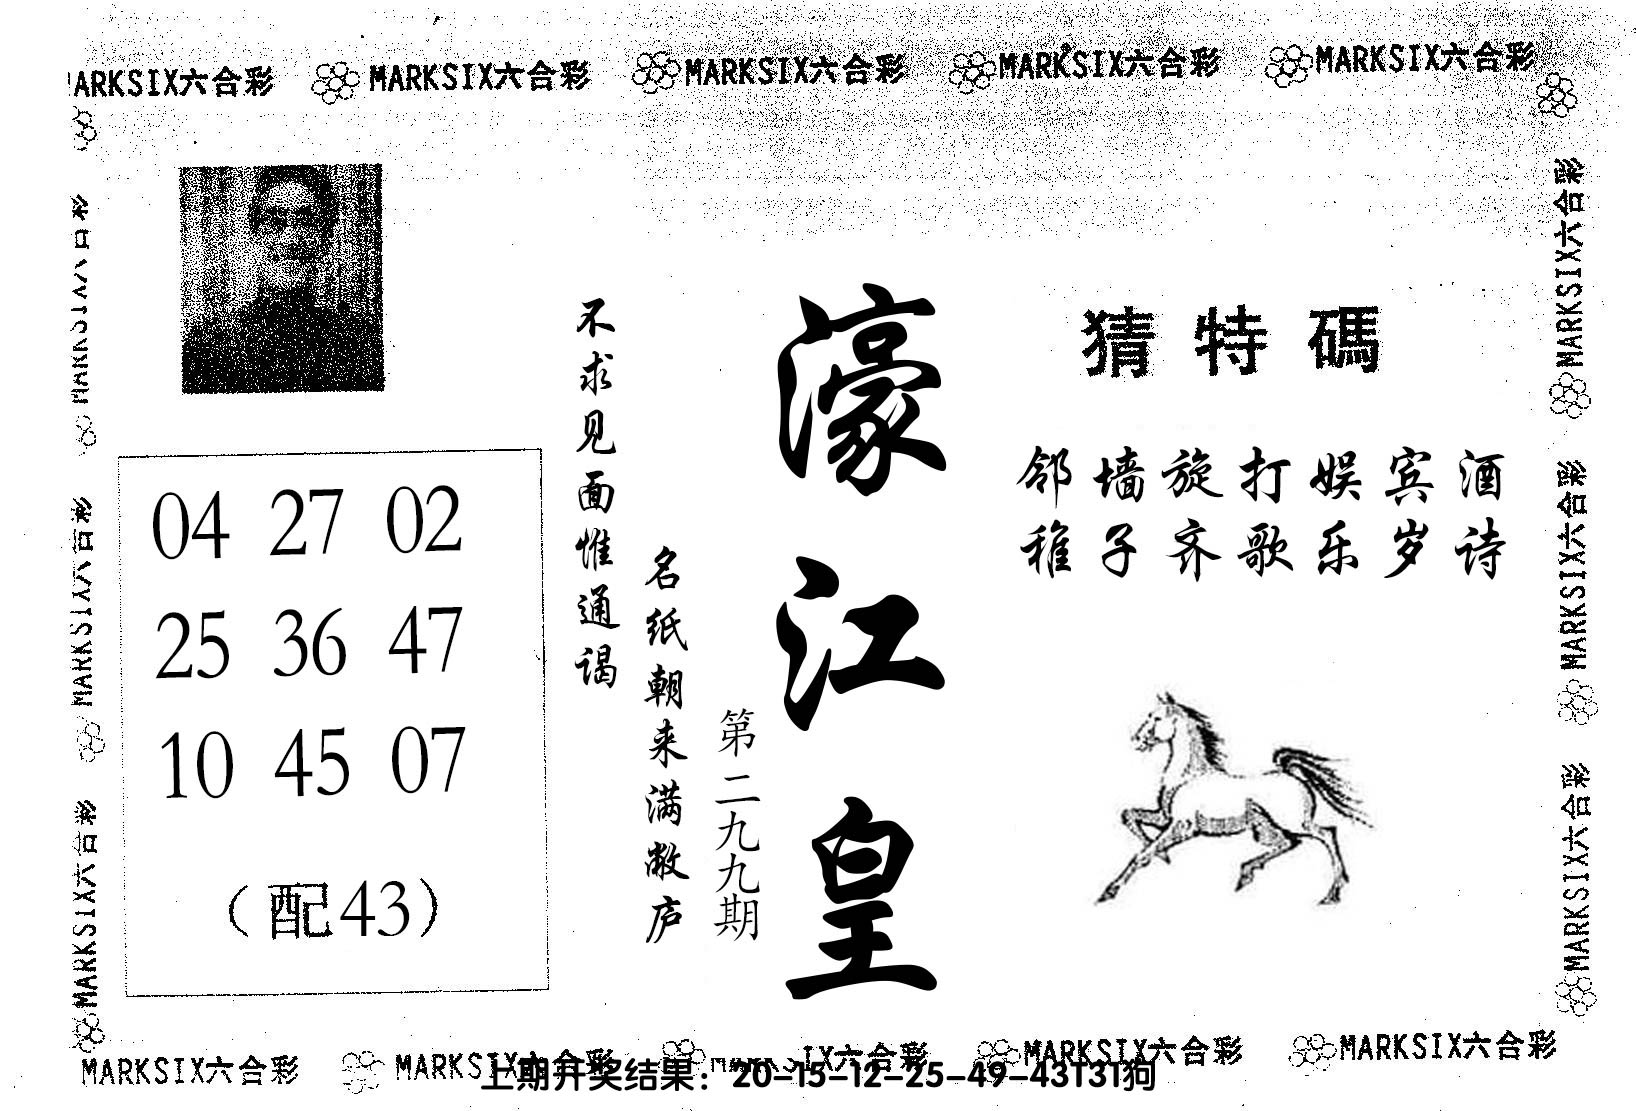 MARKSIX六合彩 MARKSIX六合彩 MARKSIX六合彩 MARKSIX六合彩 MARKSIX六合彩
猜特碼
邻墙旋打娱宾酒
稚子齐歌乐岁诗
濠江皇
第二九九期
不求见面惟通谒
名纸朝来满敝庐
04 27 02
25 36 47
10 45 07
（配43）
MARKSIX六合彩
MARKSIX六合彩
MARKSIX六合彩
MARKSIX六合彩
MARKSIX六合彩
MARKSIX六合彩
MARKSIX六合彩 MARKSIX六合彩 MARKSIX六合彩 MARKSIX六合彩 MARKSIX六合彩
上期开奖结果：20-15-12-25-49-43T31狗